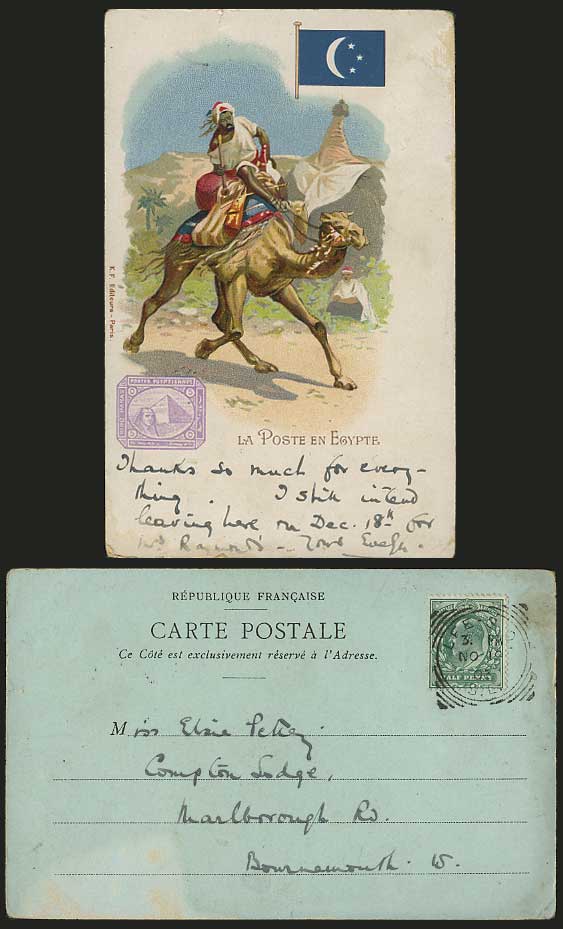 K. F. Editeurs - Paris.
POSTES EGYPTIENNES
LA POSTE EN EGYPTE.
Thanks so much for every-
thing. I still intend
leaving here on Dec. 18th for
Yours
RÉPUBLIQUE FRANÇAISE
CARTE POSTALE
Ce Côté est exclusivement réservé à l'Adresse.
HALF PENNY
3.
NO
Miss Elsie
Compton Lodge,
Marlborough Rd.
Bournemouth. W.